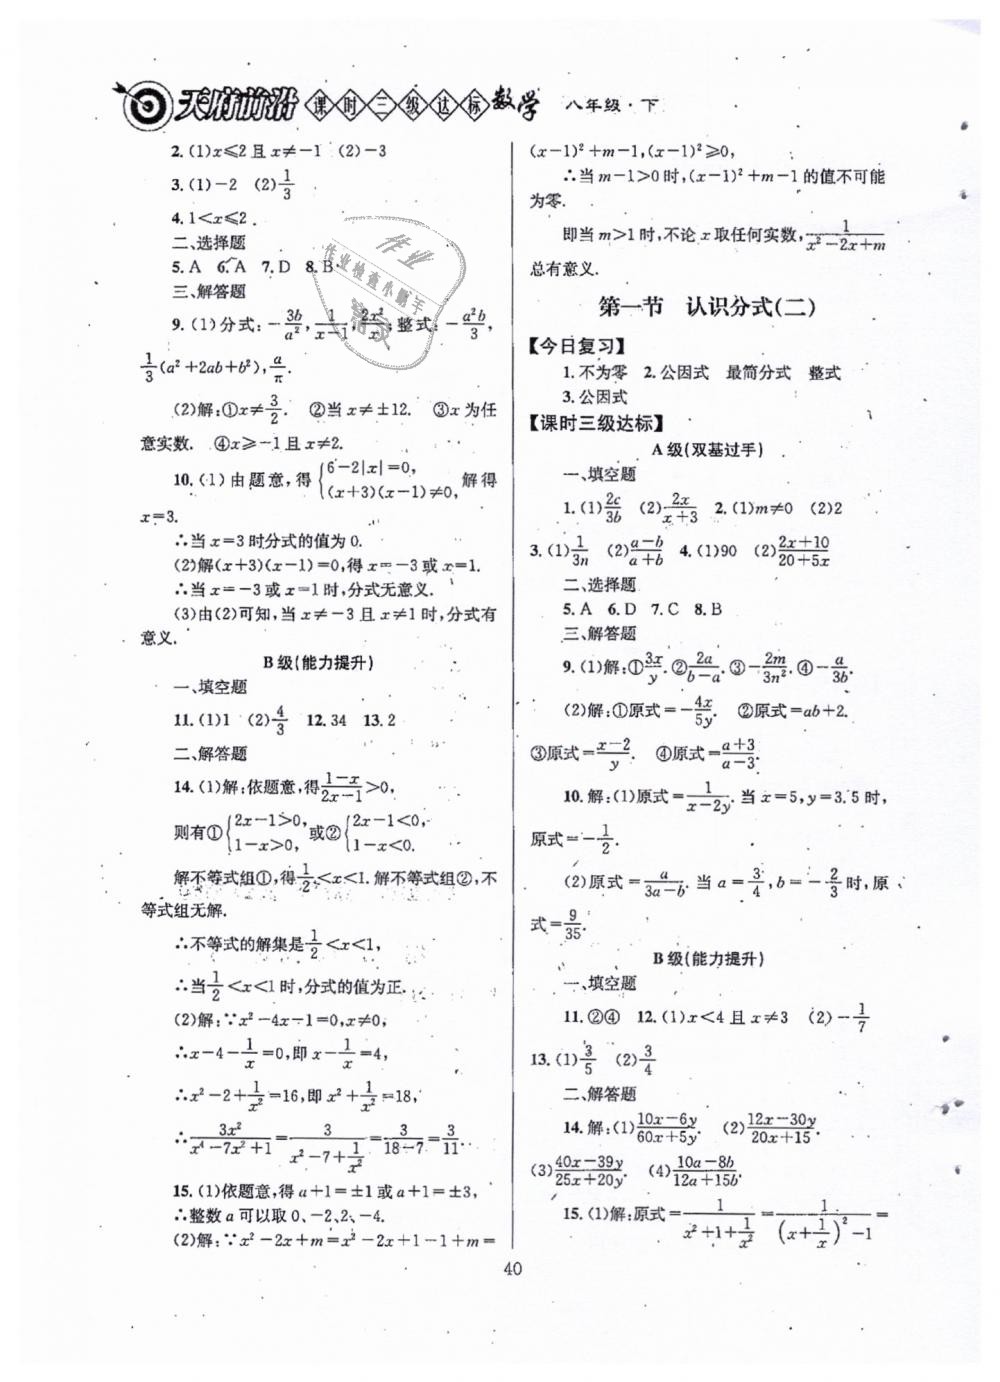 天府前沿 课时三级达标 数学 八年级·下
2. (1)x≤2且x≠-1 (2)-3
3. (1)-2 (2)1/3
4. 1<x≤2
二、选择题
5. A 6. A 7. D 8. B
三、解答题
9. (1)分式:-3b/a²,1/(x-1),2x²/x;整式:-a²b/3,
1/3(a²+2ab+b²),a/π.
(2)解:①x≠3/2. ②当x≠±12. ③x为任
意实数. ④x≥-1且x≠2.
10. (1)由题意,得{6-2|x|=0, (x+3)(x-1)≠0, 解得
x=3.
∴当x=3时分式的值为0.
(2)解(x+3)(x-1)=0,得x=-3或x=1.
∴当x=-3或x=1时,分式无意义.
(3)由(2)可知,当x≠-3且x≠1时,分式有
意义.
B级(能力提升)
一、填空题
11. (1)1 (2)4/3 12. 34 13. 2
二、解答题
14. (1)解:依题意,得(1-x)/(2x-1)>0,
则有①{2x-1>0, 1-x>0, 或②{2x-1<0, 1-x<0.
解不等式组①,得1/2<x<1. 解不等式组②,不
等式组无解.
∴不等式的解集是1/2<x<1,
∴当1/2<x<1时,分式的值为正.
(2)解:∵x²-4x-1=0,x≠0,
∴x-4-1/x=0,即x-1/x=4,
∴x²-2+1/x²=16,即x²+1/x²=18,
∴3x²/(x⁴-7x²+1)=3/(x²-7+1/x²)=3/(18-7)=3/11.
15. (1)依题意,得a+1=±1或a+1=±3,
∴整数a可以取0、-2、2、-4.
(2)解:∵x²-2x+m=x²-2x+1-1+m=
(x-1)²+m-1,(x-1)²≥0,
∴当m-1>0时,(x-1)²+m-1的值不可能
为零.
即当m>1时,不论x取任何实数,1/(x²-2x+m)
总有意义.
第一节 认识分式(二)
【今日复习】
1. 不为零 2. 公因式 最简分式 整式
3. 公因式
【课时三级达标】
A级(双基过手)
一、填空题
1. (1)2c/3b (2)2x/(x+3) 2. (1)m≠0 (2)2
3. (1)1/3n (2)(a-b)/(a+b) 4. (1)90 (2)(2x+10)/(20+5x)
二、选择题
5. A 6. D 7. C 8. B
三、解答题
9. (1)解:①3x/y. ②2a/(b-a). ③-2m/3n². ④-a/3b.
(2)解:①原式=-4x/5y. ②原式=ab+2.
③原式=(x-2)/y. ④原式=(a+3)/(a-3).
10. 解:(1)原式=1/(x-2y). 当x=5,y=3.5时,
原式=-1/2.
(2)原式=a/(3a-b). 当a=3/4,b=-2/3时,原
式=9/35.
B级(能力提升)
一、填空题
11. ②④ 12. (1)x<4且x≠3 (2)-1/7
13. (1)3/5 (2)3/4
二、解答题
14. 解:(1)(10x-6y)/(60x+5y). (2)(12x-30y)/(20x+15).
(3)(40x-39y)/(25x+20y). (4)(10a-8b)/(12a+15b).
15. (1)解:原式=1/(x²+1+1/x²)=1/((x+1/x)²-1)=
40
作业
作业检查小帮手